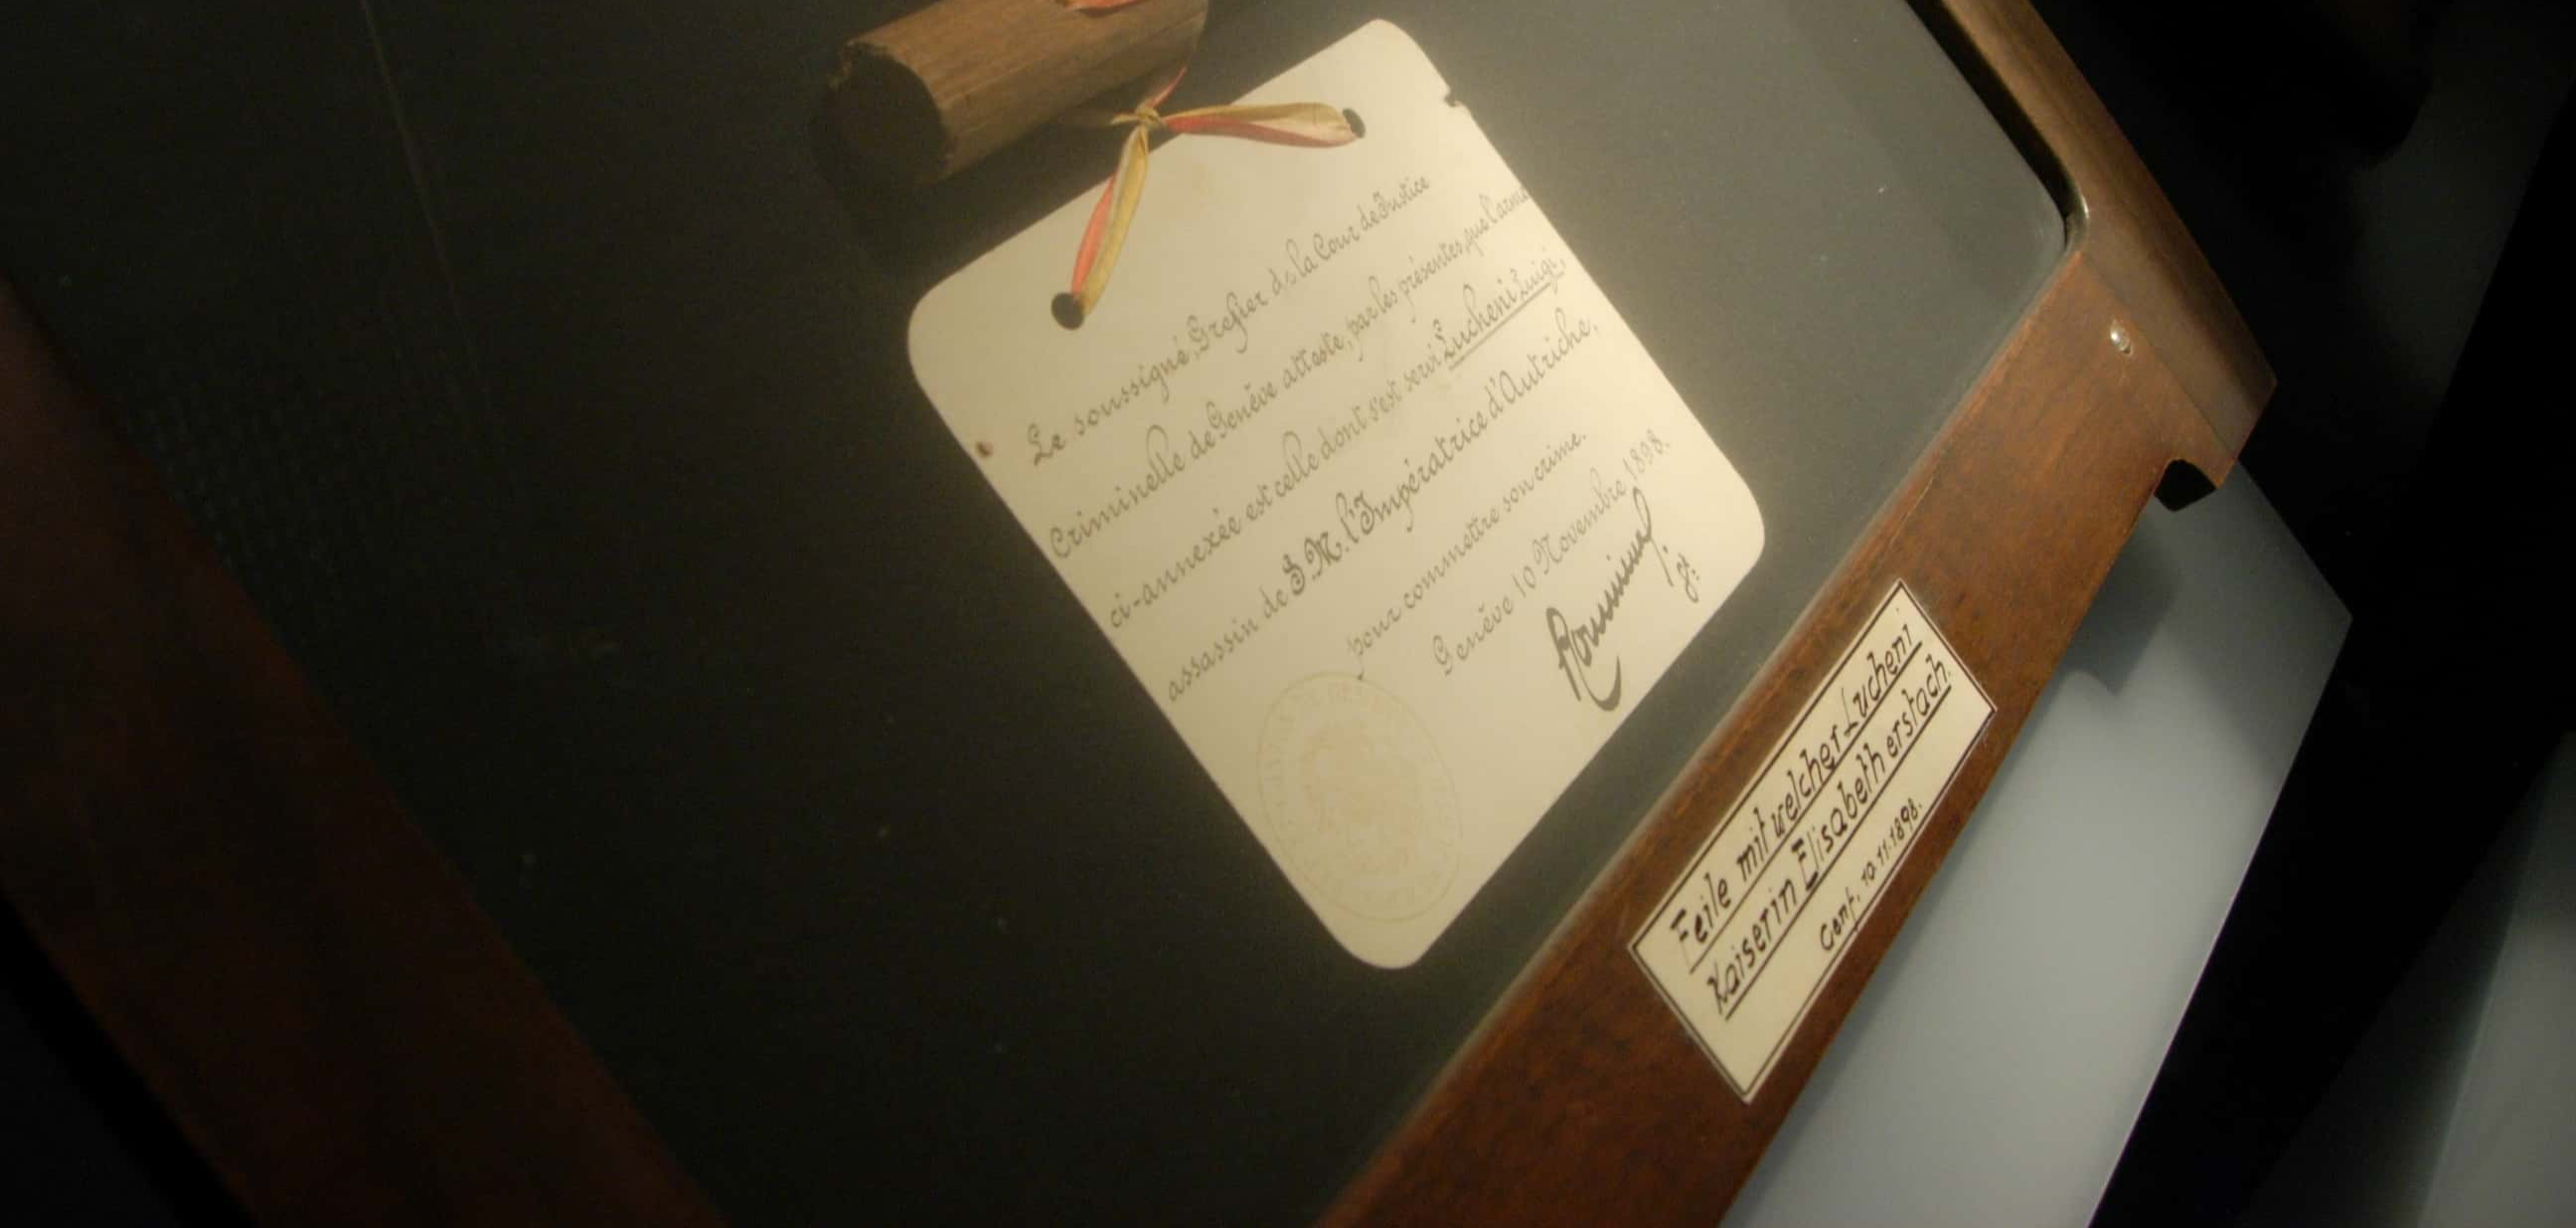 Le soussigné, Grefier de la Cour de Justice
Criminelle de Genève atteste, par les présentes, que l'arme
ci-annexée est celle dont s'est servi Lucheni Luigi,
assassin de S. M. l'Impératrice d'Autriche,
pour commettre son crime.
Genève 10 Novembre 1898.
Feile mit welcher Lucheni
Kaiserin Elisabeth erstach.
Genf. 10.11.1898.